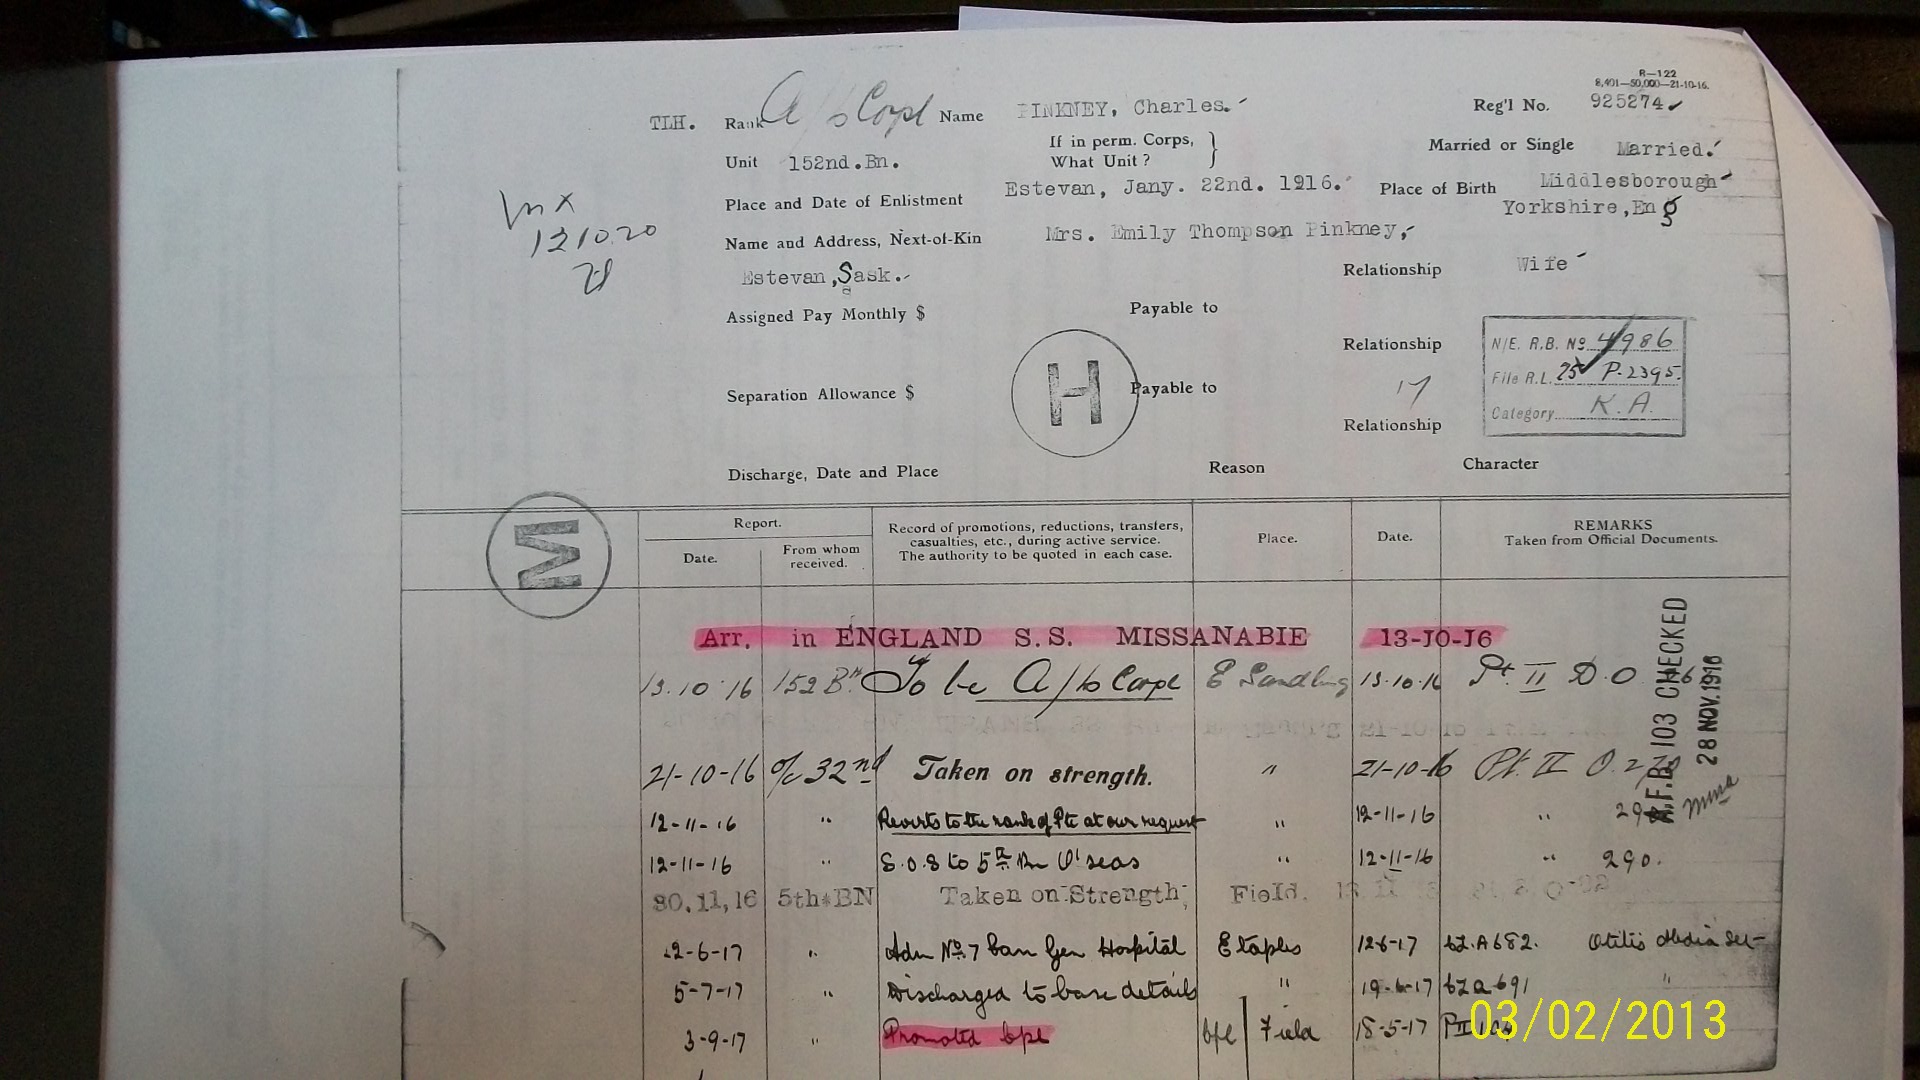 R—122
8,401—50,000—21-10-16.
TLH. Rank A/S Corpl Name PINKNEY, Charles. Reg'l No. 925274
Unit 152nd.Bn. If in perm. Corps, What Unit ? } Married or Single Married.
Place and Date of Enlistment Estevan, Jany. 22nd. 1916. Place of Birth Middlesborough
Yorkshire, Eng
Name and Address, Next-of-Kin Mrs. Emily Thompson Pinkney,
Estevan, Sask. Relationship Wife
121020
Assigned Pay Monthly $ Payable to
Relationship
N/E. R.B. No 4986
File R.L. 25 P.2395.
Category K.A.
Separation Allowance $ H Payable to 17
Relationship
Discharge, Date and Place Reason Character
M
Report. Date. From whom received.
Record of promotions, reductions, transfers, casualties, etc., during active service.
The authority to be quoted in each case.
Place. Date.
REMARKS
Taken from Official Documents.
Arr. in ENGLAND S.S. MISSANABIE 13-J0-J6
13.10.16 152 Bn To be A/S Corpl E Sandling 13.10.16 Pt II D.O
21-10-16 O/C 32nd Taken on strength. " 21-10-16 Pt. II O.
12-11-16 " Reverts to the rank of Pte at our request " 12-11-16 "
12-11-16 " S.O.S to 5th Bn O'seas " 12-11-16 " 290.
30.11,16 5th*BN Taken on Strength, Field.
12-6-17 " Adm No. 7 Can Gen Hospital Etaples 12-6-17 CL.A682. Otitis Media
5-7-17 " Discharged to base details " 19-6-17 CL a 691 "
3-9-17 " Promoted Cpl Cpl Field 18-5-17 PII
A.F.B. 103 CHECKED
28 NOV. 1916
03/02/2013